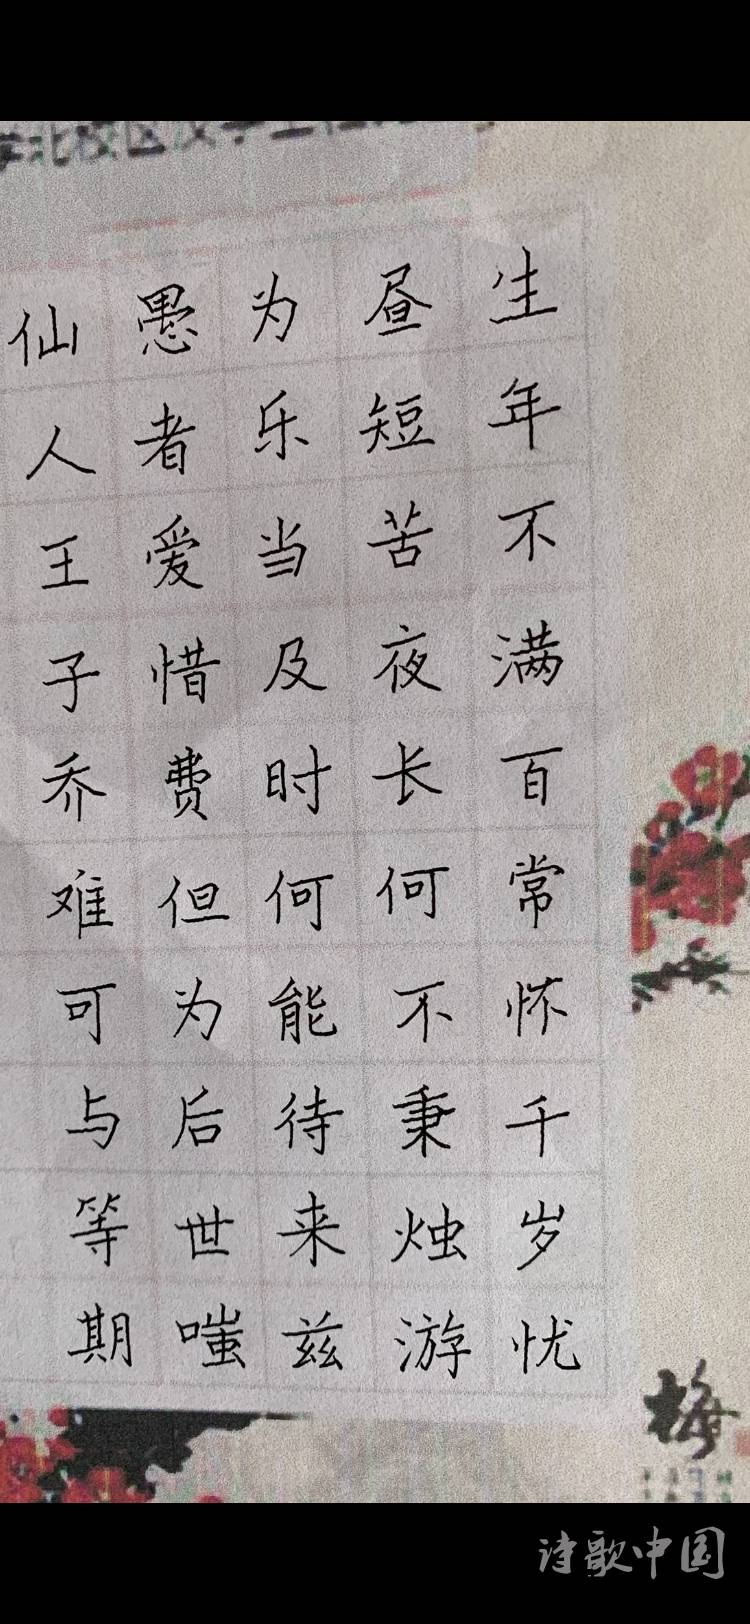 生年不满百常怀千岁忧
昼短苦夜长何不秉烛游
为乐当及时何能待来兹
愚者爱惜费但为后世嗤
仙人王子乔难可与等期
梅
诗歌中国